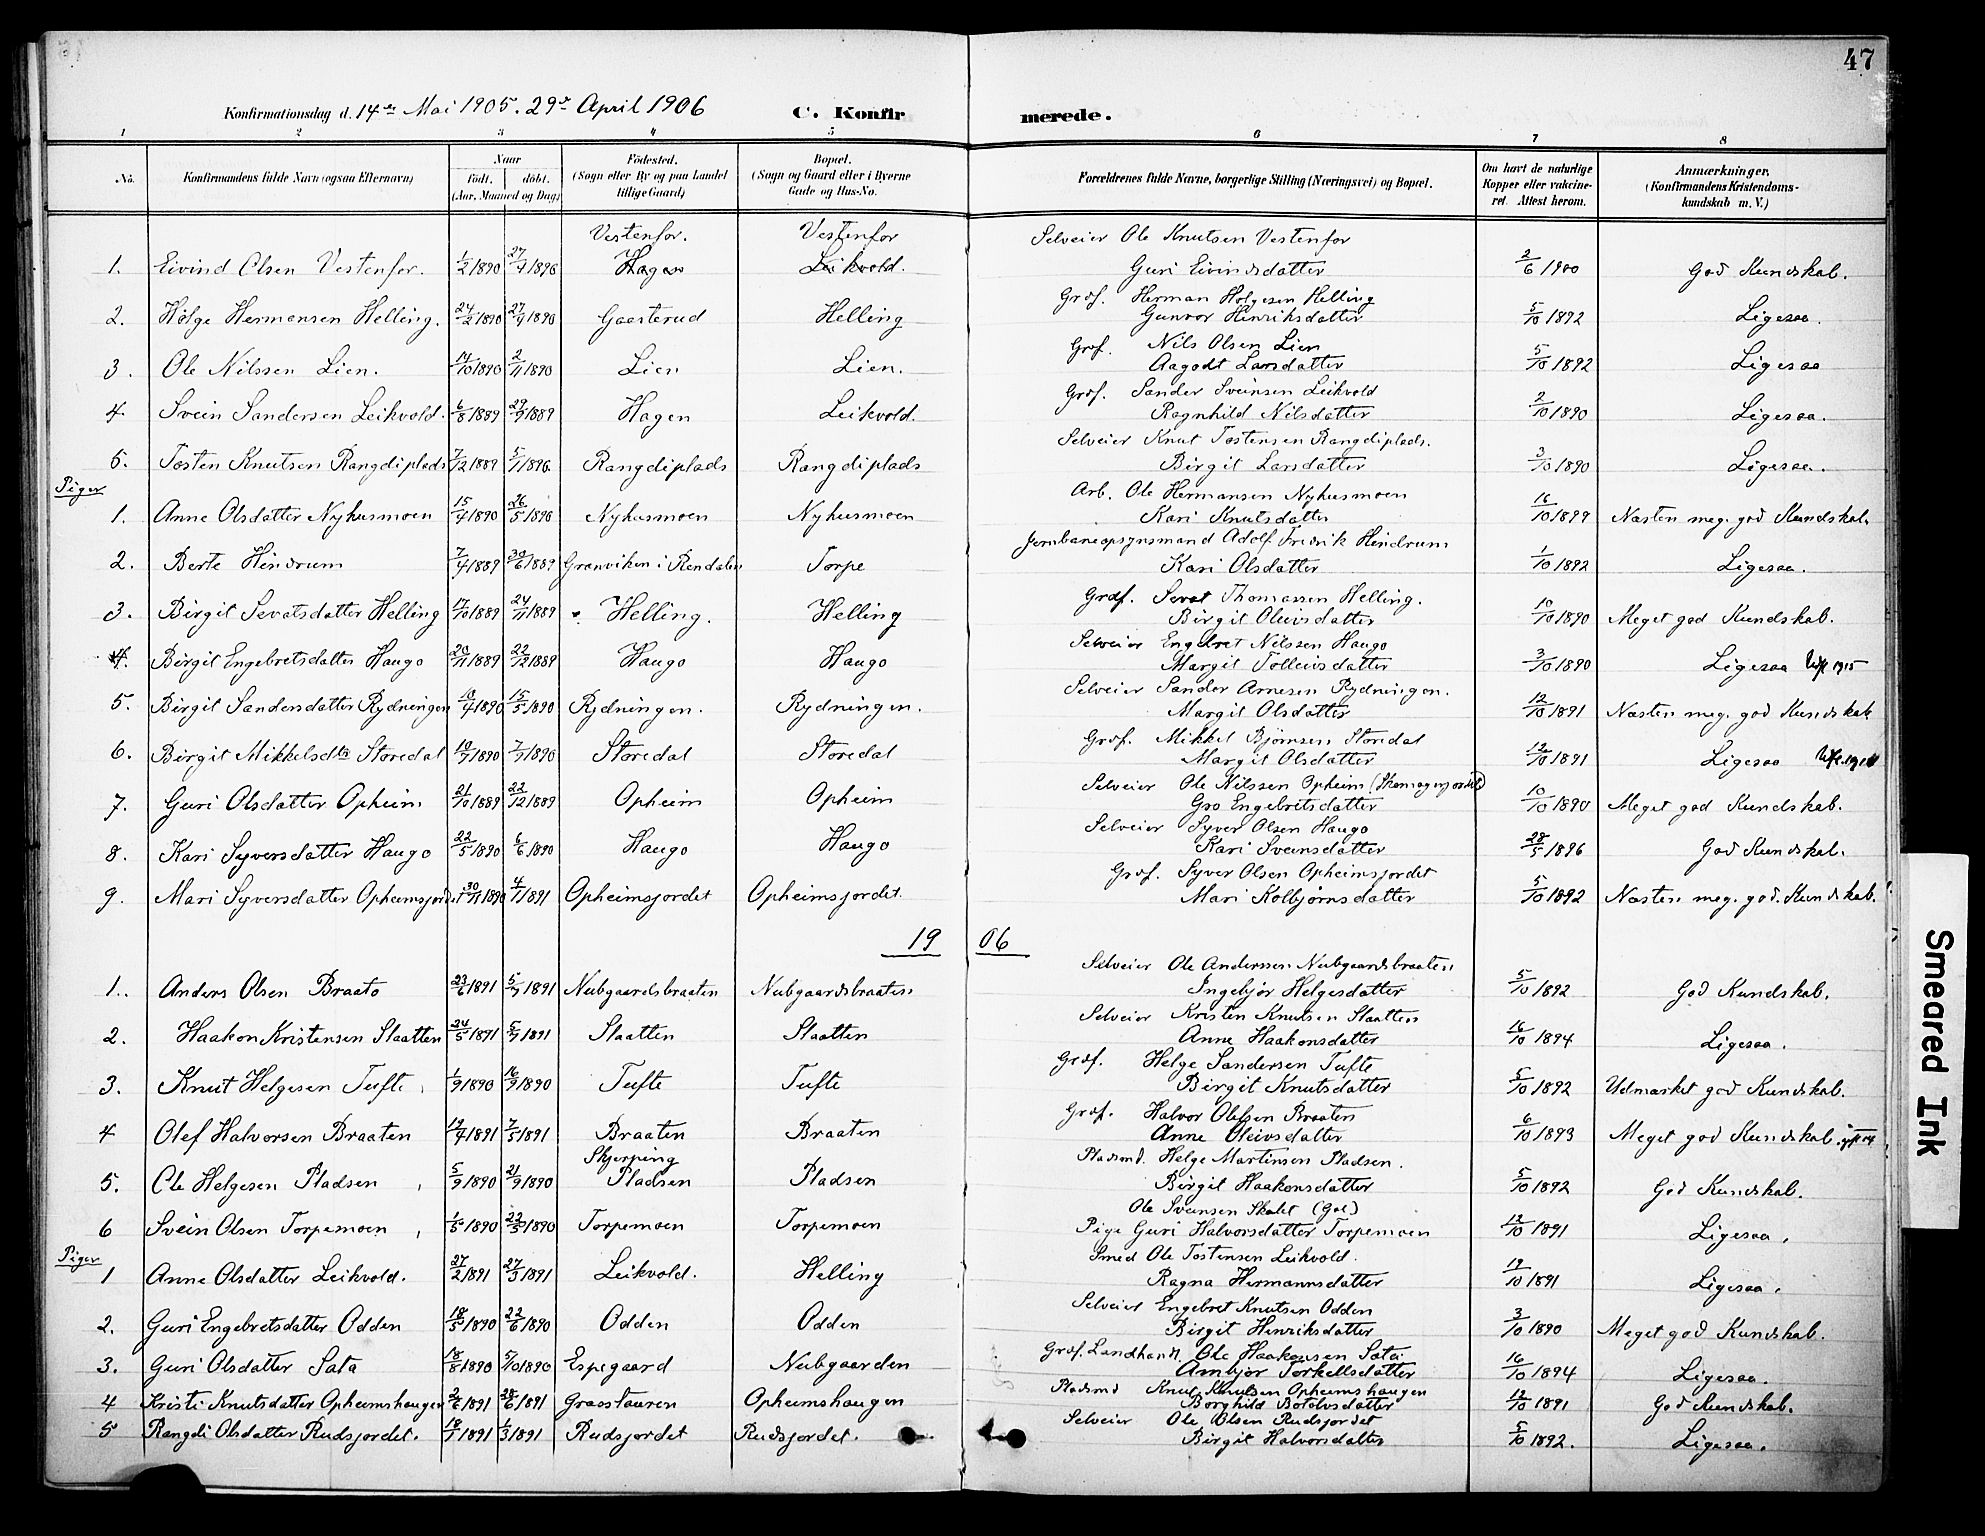 47
Konfirmationsdag d. 14de Mai 1905. 29de April 1906 C. Konfirmerede.
1 2 3 4 5 6 7 8
No. Konfirmandens fulde Navn (ogsaa Efternavn) Naar Födt. döbt. (Aar, Maaned og Dag) Födested. (Sogn eller By og paa Landet tillige Gaard) Bopæl. (Sogn og Gaard eller i Byerne Gade og Hus-No. Forældrenes fulde Navne, borgerlige Stilling (Næringsvei) og Bopæl. Om havt de naturlige Kopper eller vakcineret. Attest herom. Anmærkninger, (Konfirmandens Kristendomskundskab m. V.)
Vestenfor. Vestenfor Selveier Ole Knutsen Vestenfor
1. Eivind Olsen Vestenfor. 1/2 1890 27/4 1890 Hagen Leikvold. Guri Eivindsdatter 2/6 1900 God Kundskab.
Græf. Herman Holgesen Helling
2. Holge Hermansen Helling. 24/2 1890 27/4 1890 Gaasterud Helling Gunvor Henriksdatter 5/10 1892 Ligesaa.
Græf. Nils Olsen Lien
3. Ole Nilssen Lien. 14/10 1890 2/11 1890 Lien Lien. Aagodt Larsdatter 5/10 1892 Ligesaa
Græf. Sander Sveinsen Leikvold
4. Svein Sandersen Leikvold. 6/8 1889 29/9 1889 Hagen Leikvold. Ragnhild Nilsdatter 2/10 1890 Ligesaa.
Selveier Knut Tostensen Rangdiplads.
5. Tosten Knutsen Rangdiplads 7/12 1889 5/1 1890. Rangdiplads Rangdiplads Birgit Larsdatter 3/10 1890 Ligesaa.
Piger
Arb. Ole Hermansen Nyhusmoen
1. Anne Olsdatter Nyhusmoen 15/4 1890 26/5 1890 Nyhusmoen Nyhusmoen Kari Knutsdatter 16/10 1899 Næsten meg. god Kundskab.
Jernbaneopsynsmand Adolf Fredrik Hindrum
2. Berte Hindrum 7/4 1889 30/6 1889 Granviken i Rendalen Torpe Kari Olsdatter 1/10 1892 Ligesaa.
Græf. Sevat Thomassen Helling.
3. Birgit Sevatsdatter Helling 17/10 1889 24/11 1889 Helling. Helling Birgit Oleivsdatter 10/10 1890 Meget god Kundskab.
Selveier Engebret Nilssen Haugo
4. Birgit Engebretsdatter Haugo 20/11 1889 22/12 1889 Haugo Haugo Margit Tolleivsdatter 3/10 1890 Ligesaa 1915
Selveier Sander Arnesen Rydningen.
5. Birgit Sandersdatter Rydningen 10/4 1890 15/5 1890 Rydningen. Rydningen. Margit Olsdatter 12/10 1891 Næsten meg. god Kundskab
Græf. Mikkel Bjørnsen Storedal
6. Birgit Mikkelsdtr Storedal 10/7 1890 7/9 1890 Storedal Storedal Margit Olsdatter 12/10 1891 Ligesaa
Selveier Ole Nilssen Opheim
7. Guri Olsdatter Opheim 21/10 1889 22/12 1889 Opheim Opheim Gro Engebretsdatter 10/10 1890 Meget god Kundskab.
Selveier Syver Olsen Haugo
8. Kari Syversdatter Haugo 22/5 1890 6/6 1890 Haugo Haugo Kari Sveinsdatter 28/5 1896 God Kundskab.
Græf. Syver Olsen Opheimsjordet
9. Mari Syversdatter Opheimsjordet 30/11 1890 4/1 1891 Opheimsjordet Opheimsjordet. Mari Kolbjørnsdatter 5/10 1892 Næsten meg. god. Kundskab.
1906
Selveier Ole Anderssen Nubgaardsbraaten
1. Anders Olsen Braato 23/6 1891 5/7 1891 Nubgaardsbraaten Nubgaardsbraaten Ingebjør Helgesdatter 5/10 1892 God Kundskab.
Selveier Kristen Knutsen Slaatten
2. Haakon Kristensen Slaatten 24/5 1891 5/7 1891 Slaatten Slaatten Anne Haakonsdatter 16/10 1894 Ligesaa.
Græf. Helge Sandersen Tufte
3. Knut Helgesen Tufte 1/9 1890 16/9 1890 Tufte Tufte Birgit Knutsdatter 5/10 1892 Udmærket god Kundskab.
Græf. Halvor Olefsen Braaten
4 Olef Halvorsen Braaten 19/4 1891 7/5 1891 Braaten Braaten Anne Oleivsdatter 6/10 1893 Meget god Kundskab.
Skjerping Pladsmd. Helge Martinsen Pladsen.
5. Ole Helgesen Pladsen 5/9 1890 21/9 1890 Pladsen Pladsen Birgit Haakonsdatter 5/10 1892 God Kundskab.
Ole Sveinsen Skalet (Gol)
6 Svein Olsen Torpemoen 1/5 1890 22/5 1890 Torpemoen Torpemoen Pige Guri Halvorsdatter Torpemoen 12/10 1891 Ligesaa.
Piger
Smed Ole Tostensen Leikvold.
1 Anne Olsdatter Leikvold. 27/2 1891 27/3 1891 Leikvold. Helling Ragna Hermannsdatter 19/10 1891 Ligesaa.
Selveier Engebret Knutsen Odden
2. Guri Engebretsdatter Odden 18/5 1890 22/6 1890 Odden Odden Birgit Henriksdatter 3/10 1890 Meget god Kundskab.
Græf. Landhandl. Ole Haakonsen Sata
3. Guri Olsdatter Sata 18/8 1890 5/10 1890 Espegaard Nubgaarden Ambjør Torkellsdatter 16/10 1894 Ligesaa.
Pladsmd Knut Knutsen Opheimshaugen
4 Kristi Knutsdatter Opheimshaugen 2/6 1891 28/6 1891 Graostauren Opheimshaugen Borghild Botolvsdatter 12/10 1891 God Kundskab.
Selveier Ole Olsen Rudsjordet
5 Rangdi Olsdatter Rudsjordet. 18/1 1891 1/3 1891 Rudsjordet Rudsjordet. Birgit Halvorsdatter 5/10 1892. Ligesaa.
Smeared Ink